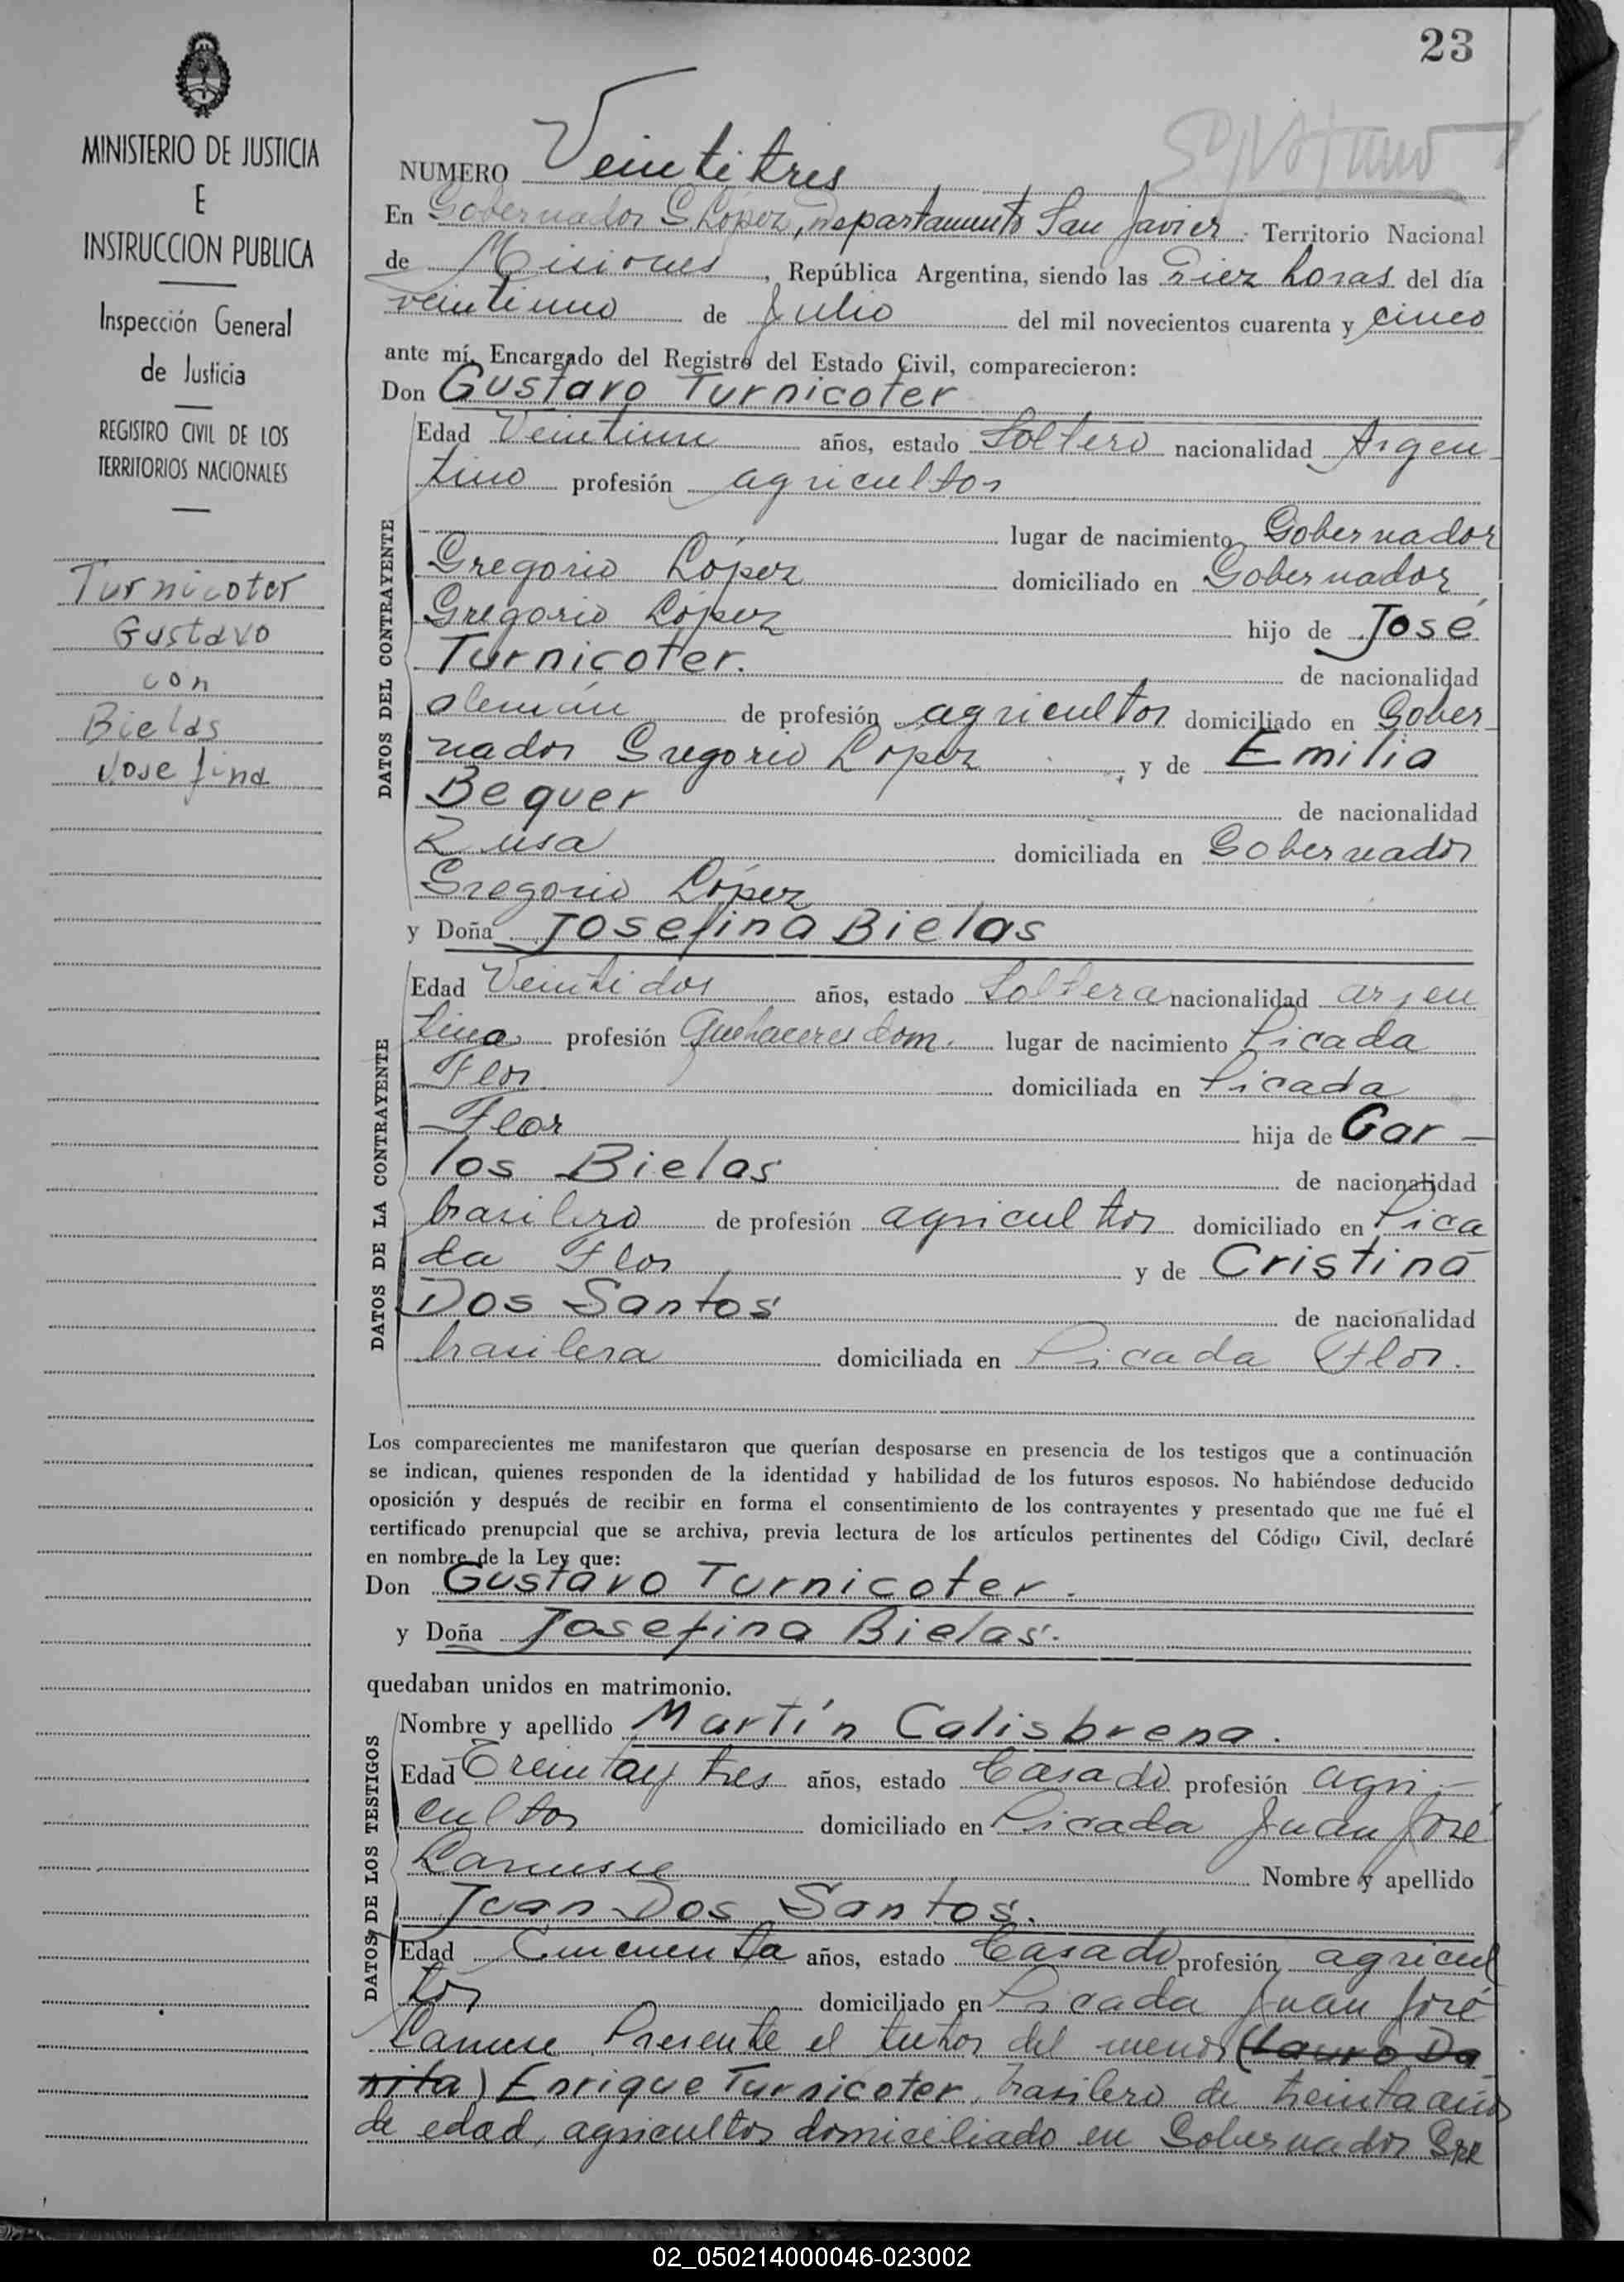 23
MINISTERIO DE JUSTICIA
E
INSTRUCCION PUBLICA
Inspección General
de Justicia
REGISTRO CIVIL DE LOS
TERRITORIOS NACIONALES
Turnicoter
Gustavo
con
Bielas
Josefina
NUMERO Veintitres
En Gobernador G. López, Departamento San Javier. Territorio Nacional
de Misiones, República Argentina, siendo las Diez horas del día
veintiuno de Julio del mil novecientos cuarenta y cinco
ante mí, Encargado del Registro del Estado Civil, comparecieron:
Don Gustavo Turnicoter
DATOS DEL CONTRAYENTE
Edad años, estado Soltero nacionalidad Argen-
tino profesión agricultor
lugar de nacimiento Gobernador
Gregorio López domiciliado en Gobernador
Gregorio López hijo de José
Turnicoter. de nacionalidad
alemán de profesión agricultor domiciliado en Gober-
nador Gregorio López y de Emilia
Bequer de nacionalidad
Rusa domiciliada en Gobernador
Gregorio López
y Doña Josefina Bielas
DATOS DE LA CONTRAYENTE
Edad Veintidos años, estado Soltera nacionalidad argen
tina profesión Quehaceres dom. lugar de nacimiento Picada
Flor domiciliada en Picada
Flor hija de Car-
los Bielas de nacionalidad
brasilero de profesión agricultor domiciliado en Pica
da Flor y de Cristina
Dos Santos de nacionalidad
brasilera domiciliada en Picada Flor.
Los comparecientes me manifestaron que querían desposarse en presencia de los testigos que a continuación
se indican, quienes responden de la identidad y habilidad de los futuros esposos. No habiéndose deducido
oposición y después de recibir en forma el consentimiento de los contrayentes y presentado que me fué el
certificado prenupcial que se archiva, previa lectura de los artículos pertinentes del Código Civil, declaré
en nombre de la Ley que:
Don Gustavo Turnicoter.
y Doña Josefina Bielas.
quedaban unidos en matrimonio.
DATOS DE LOS TESTIGOS
Nombre y apellido Martín Calisbrena.
Edad Treintay tres años, estado Casado profesión agri-
cultor domiciliado en Picada Juan José
Lanusse Nombre y apellido
Juan Dos Santos.
Edad Cincuenta años, estado Casado profesión agricul
tor domiciliado en Picada Juan José
Lanusse Presente el tutor del menor (Lauro Da
nita) Enrique Turnicoter, brasilero de treinta años
de edad, agricultor domiciliado en Gobernador Gre
02_050214000046-023002